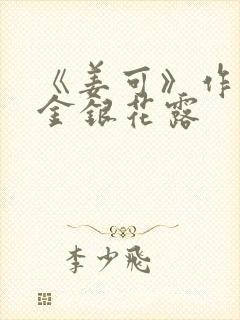 《姜可》作
金銀花露
李少飛